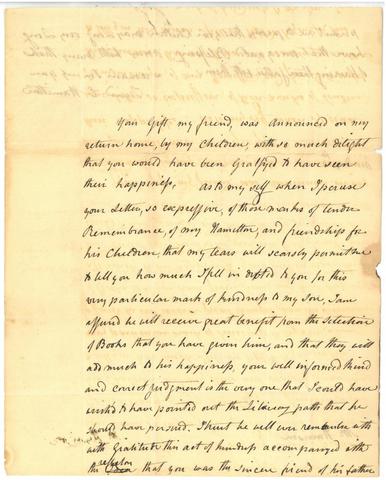 Your Gift my friend, was announced on my
return home, by my Children, with so much delight
that you would have been Gratifyed to have seen
their happiness, As to my self when I peruse
your Letter, so expressive, of those marks of tender
Remembrance, of my Hamilton, and friendships for
his Children, that my tears will scarsly permit me
to tell you how much I feel in debted to you for this
very particular mark of kindness to my son, I am
assured he will receive great benefit from the selection
of Books that you have given him, and that they will
add much to his happiness, your well informed Mind
and correct Judgment is the very one that I could have
wish'd to have pointed out the Literary path that he
should have persued. I trust he will ever remember with
with Gratitude this act of kindness accompanied with
the reflection that you was the sincere friend of his father